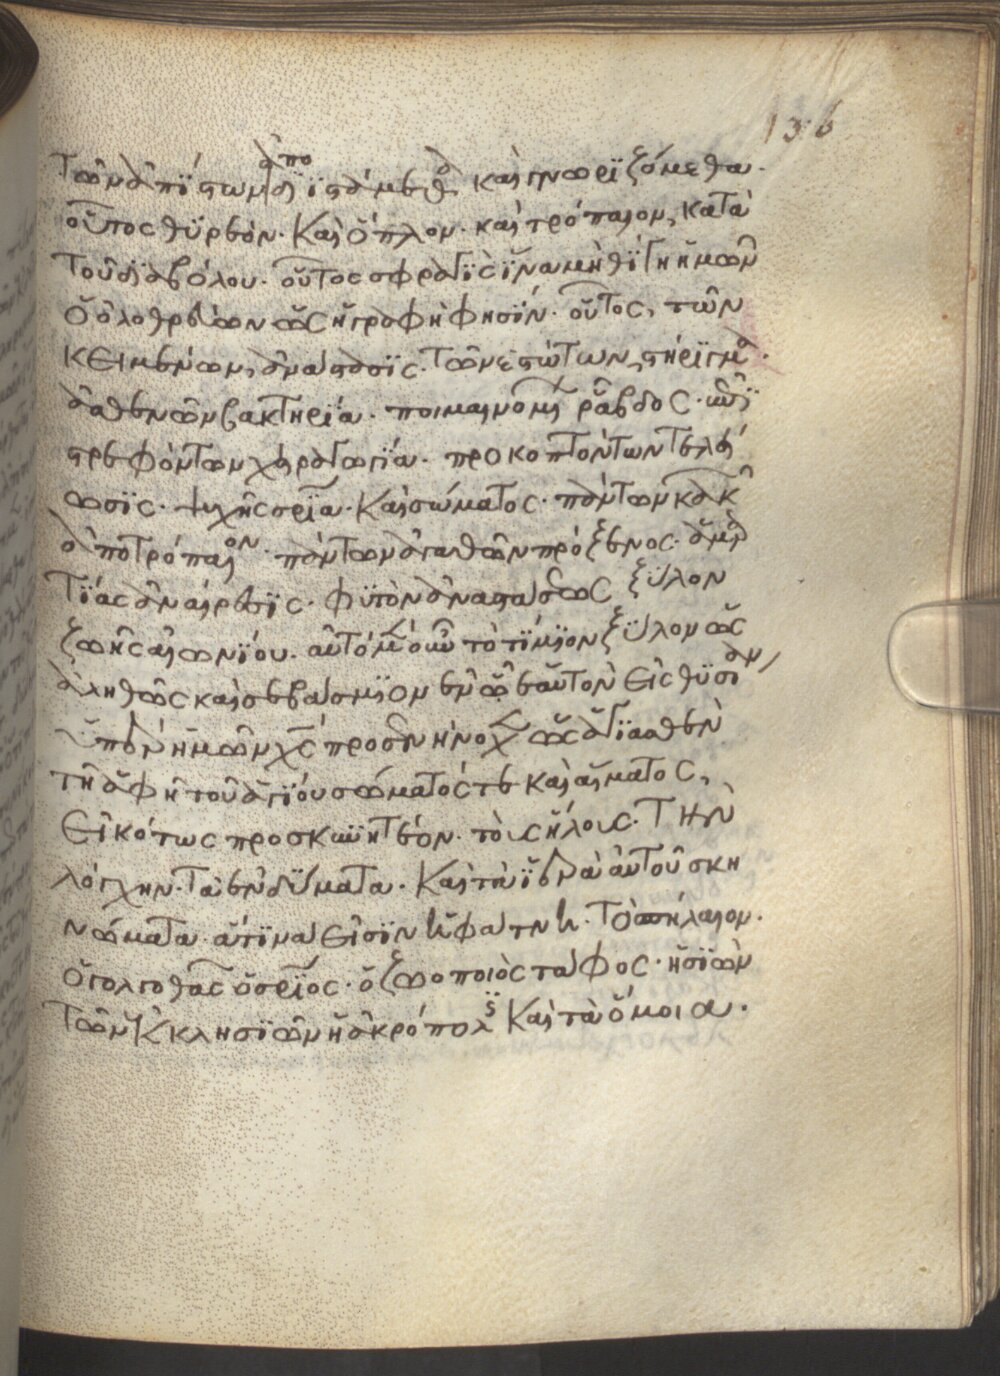 136
τῶν ἀπίστων ἀποδιϊστάμεθα καὶ γνωριζόμεθα·
οὗτος θυρεὸν· καὶ ὅπλον· καὶ τρόπαιον, κατὰ
τοῦ διαβόλου· οὗτος σφραγὶς ἵνα μὴ θίγη ἡμῶν
ὁ ὀλοθρεύων ὡς ἡ γραφὴ φησίν· οὗτος, τῶν
κειμένων, ἀνάστασις· τῶν ἑστώτων, στήριγμα·
ἀσθενῶν βακτηρία· ποιμαινομένων ῥάβδος· ἐπι
στρεφόντων χειραγωγία· προκοπτόντων τελεί
ωσις· ψυχῆς σρία· καὶ σώματος· πάντων κακῶν
ἀποτρόπαιον· πάντων ἀγαθῶν πρόξενος· ἁμαρ
τίας ἀναίρεσις· φυτὸν ἀναστάσεως ξύλον
ζωῆς αἰωνίου· αὐτὸ μὲν οὖν τὸ τίμιον ξύλον ὡς
ἀληθῶς καὶ σεβάσμιον ἐν ᾧ ἑαυτὸν εἰς θυσίαν
ὑπὲρ ἡμῶν χς προσενήνοχεν ὡς ἁγιασθὲν
τῆ ἁφῆ τοῦ ἁγίου σώματός τε καὶ αἵματος,
εἰκότως προσκυνητέον· τοὺς ἥλους· τὴν
λόγχην· τὰ ἐνδύματα· καὶ τὰ ἱερὰ αὐτοῦ σκη
νώματα ἅτινα εἰσὶν ἡ φάτνη· τὸ σπήλαιον·
ὁ γολγοθᾶς ὁ σριος· ὁ ζωοποιὸς τάφος· ἡ σιὼν
τῶν ἐκκλησιῶν ἡ ἀκρόπολις καὶ τὰ ὅμοια·